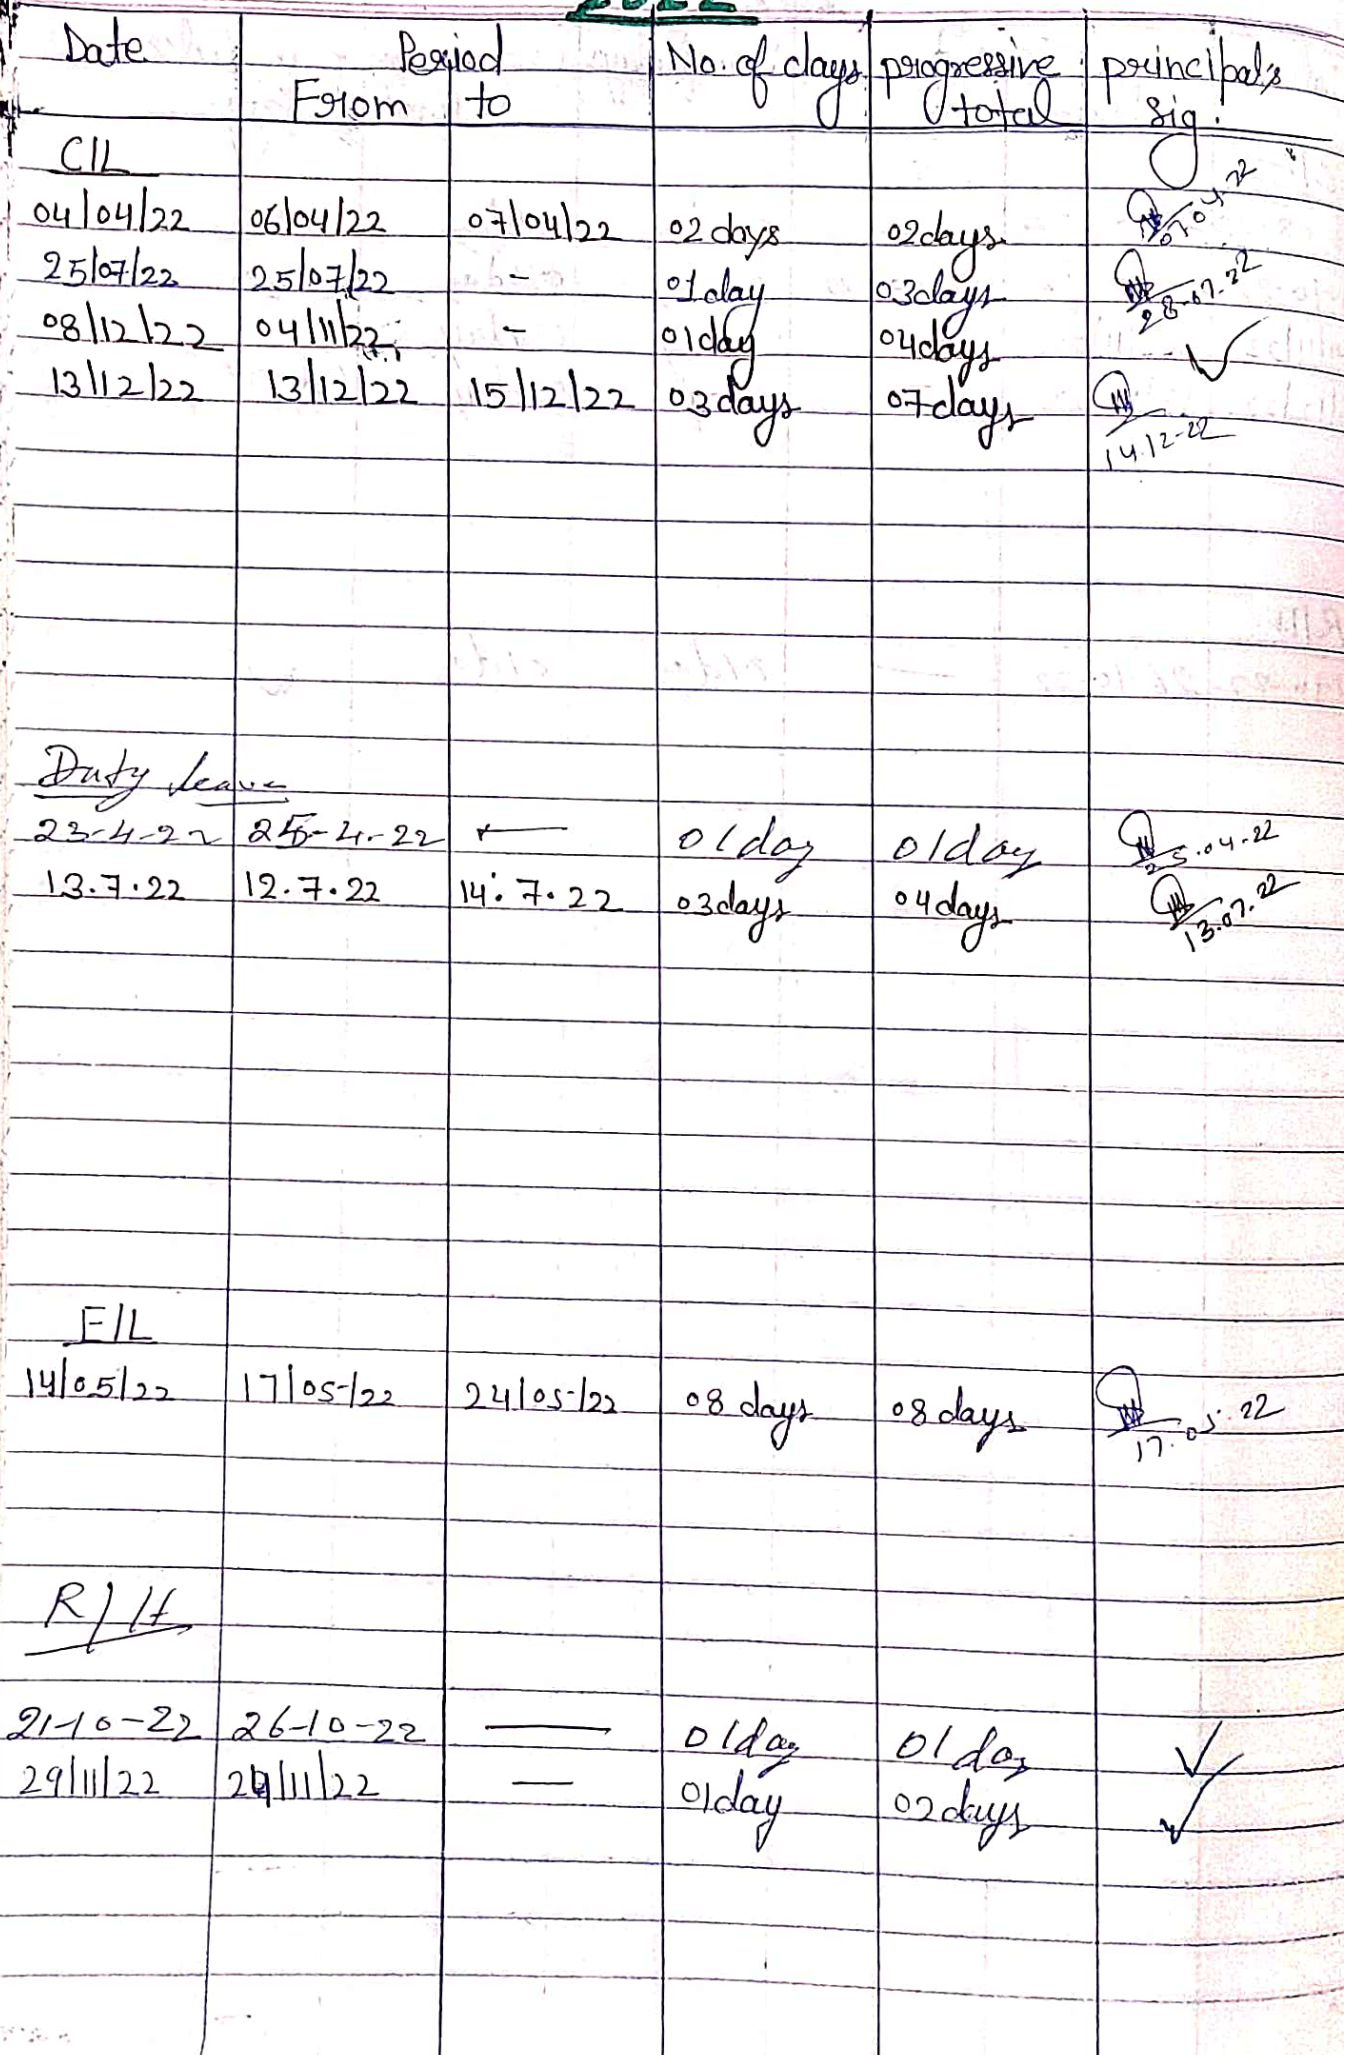 2022
Date Period No. of days progressive principal's
From to total sig.
C/L
04/04/22 06/04/22 07/04/22 02 days 02 days 07.04.22
25/07/22 25/07/22 - 01 day 03 days 28.07.22
08/12/22 04/11/22 - 01 day 04 days ✓
13/12/22 13/12/22 15/12/22 03 days 07 days
14.12-22
Duty leave
23-4-22 25-4-22 — 01 day 01 day 25.04.22
13.7.22 12.7.22 14.7.22 03 days 04 days 13.07.22
E/L
14/05/22 17/05/22 24/05/22 08 days 08 days 17.05.22
R/H
21-10-22 26-10-22 — 01 day 01 day ✓
29/11/22 — 01 day 02 days ✓